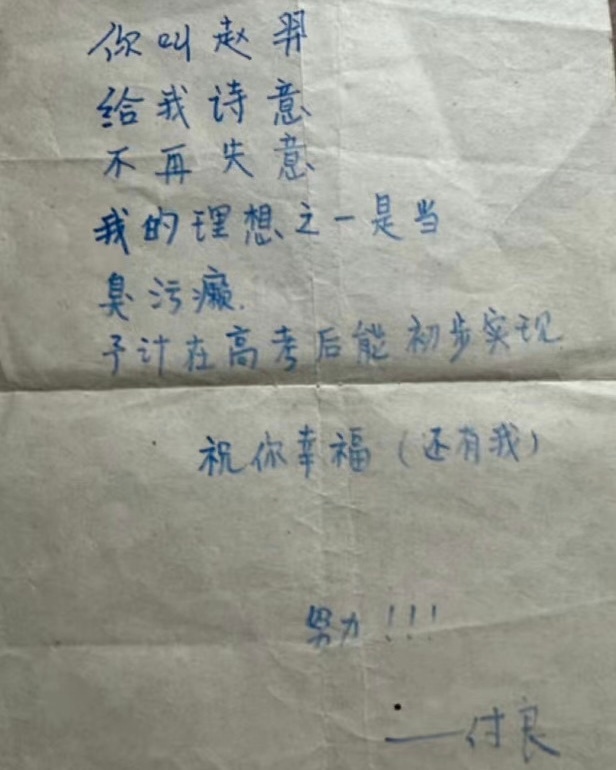 你叫赵羿
给我诗意
不再失意
我的理想之一是当
臭污癞.
予计在高考后能初步实现
祝你幸福（还有我）
努力！！！
——付良